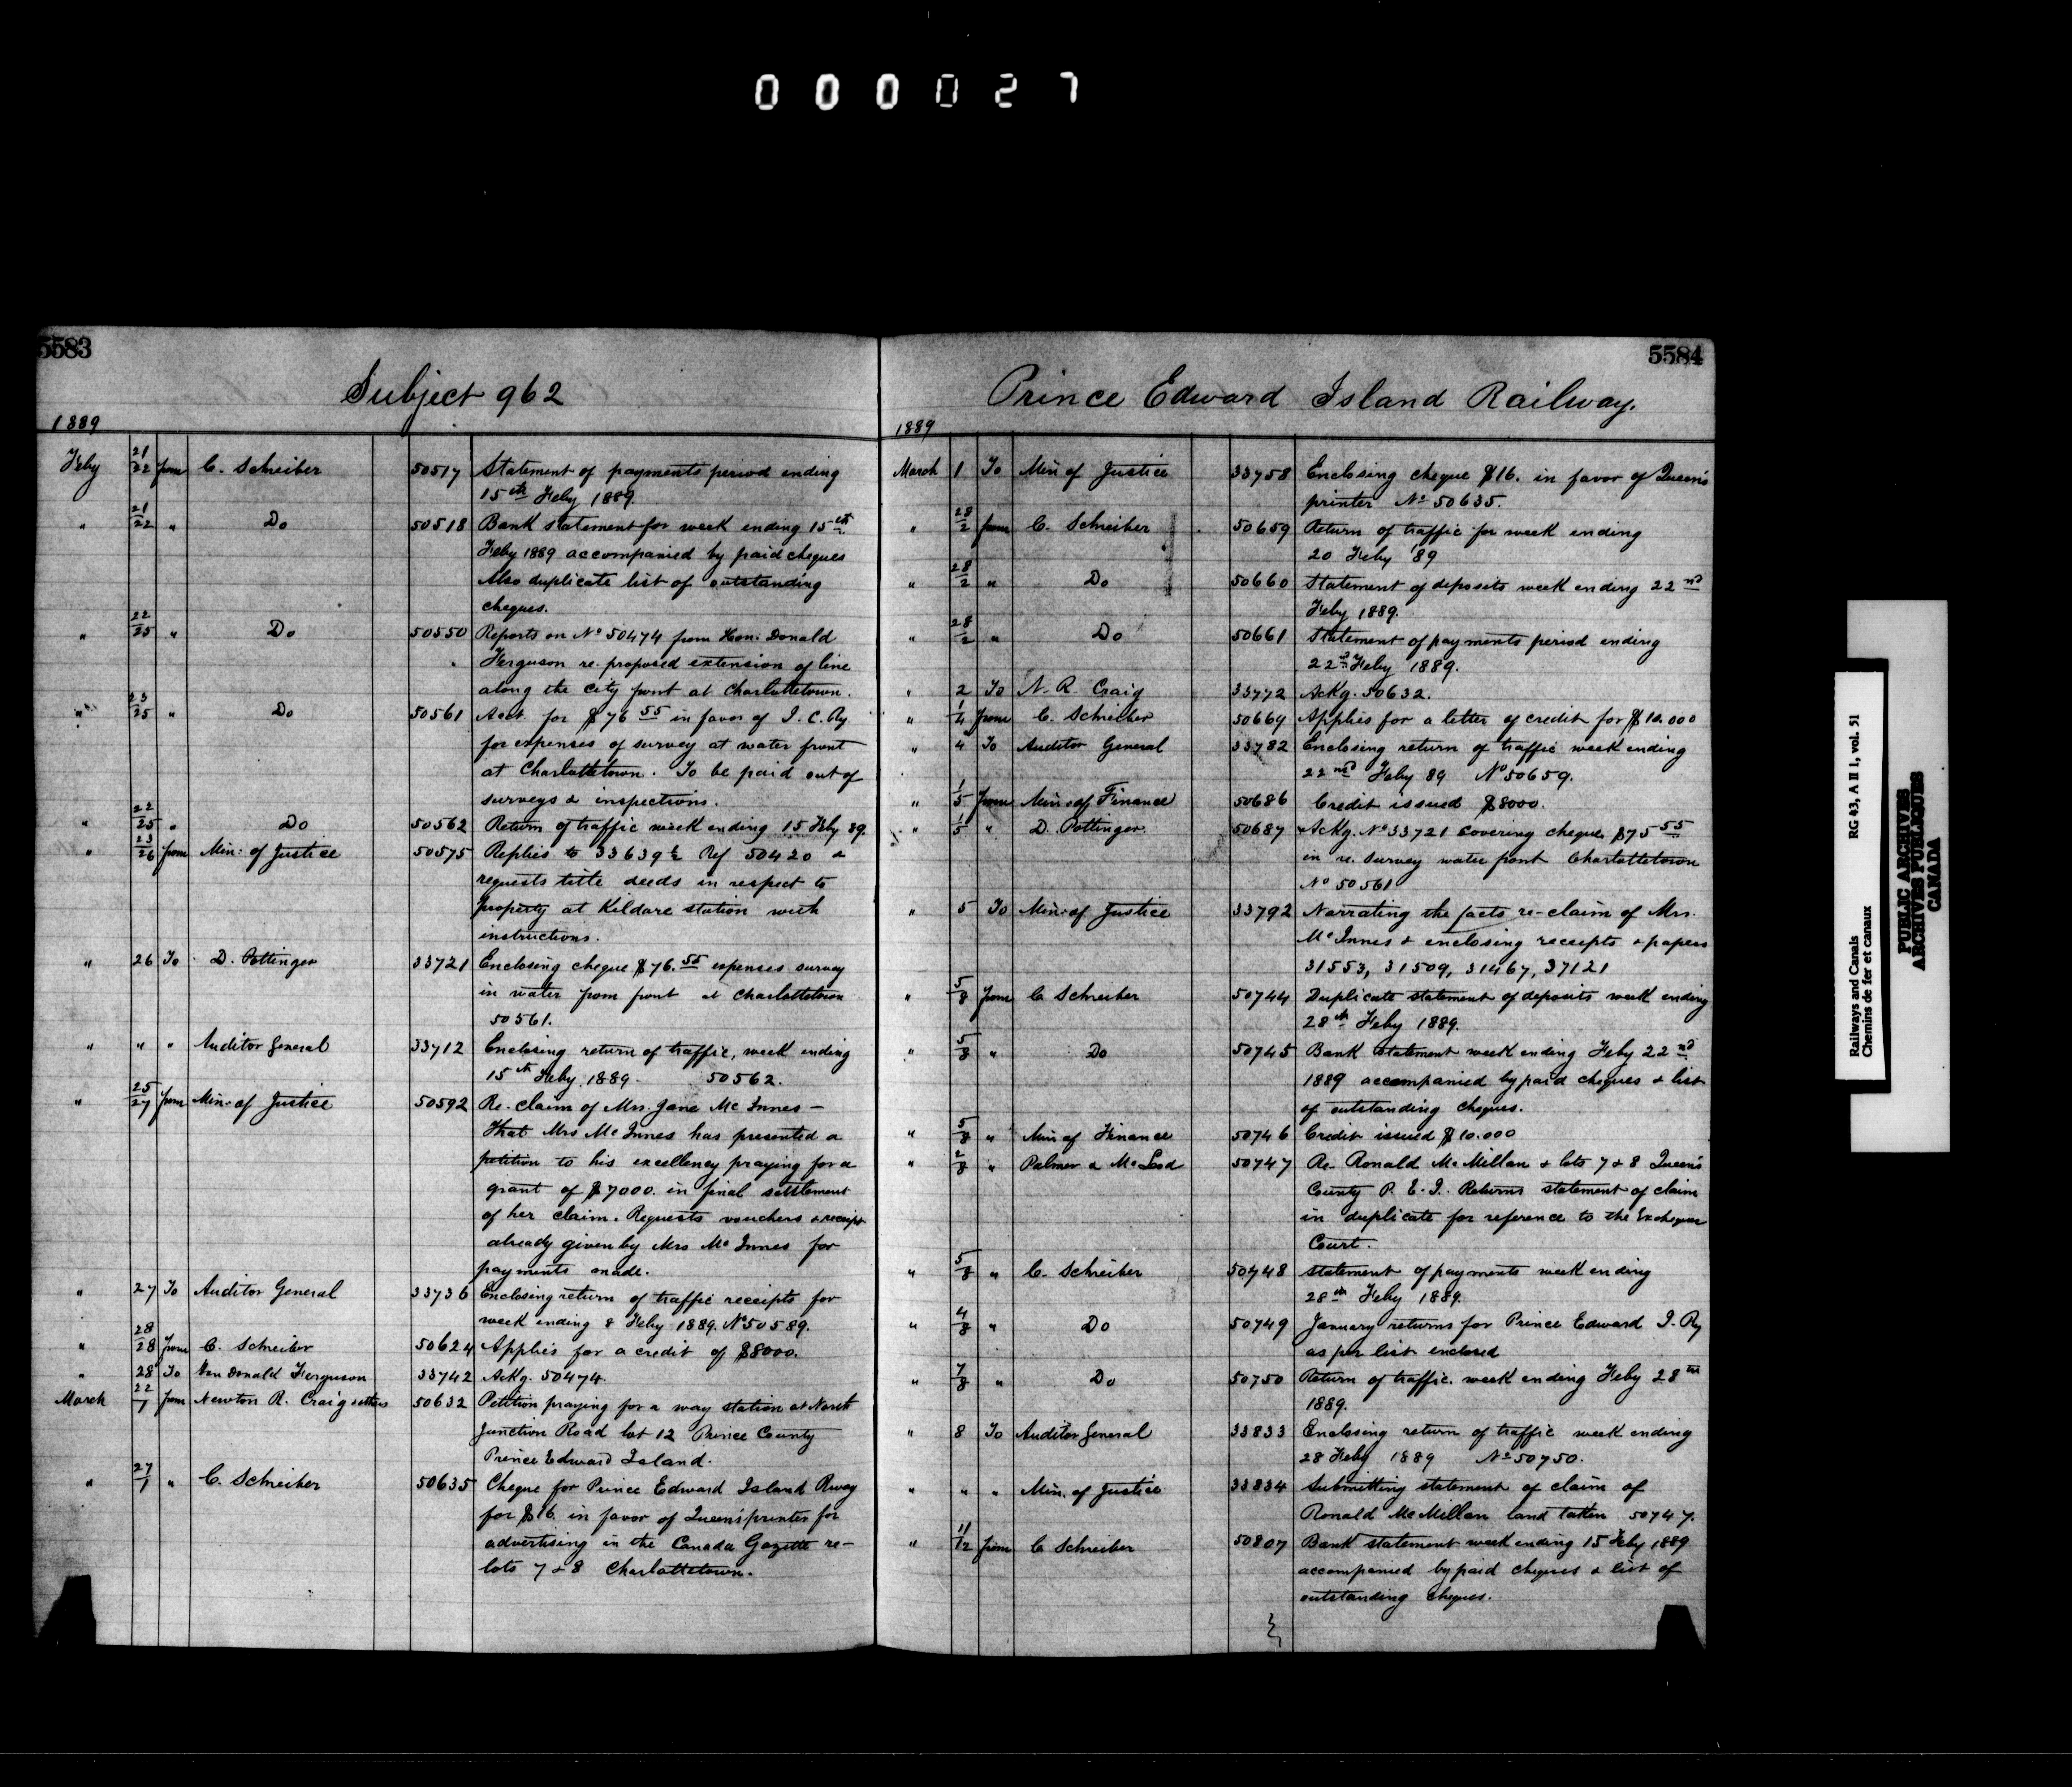 000027
5583
Subject 962
1889
Feby 21/22 from C. Schreiber 50517 Statement of payments period ending
15th Feby 1889.
" 21/22 " Do 50518 Bank statement for week ending 15th
Feby 1889 accompanied by paid cheques
Also duplicate list of outstanding
cheques.
" 22/25 " Do 50550 Reports on No 50474 from Hon: Donald
Ferguson re. proposed extension of line
along the city front at Charlottetown.
" 23/25 " Do 50561 Acct. for $76 55 in favor of I. C. Ry.
for expenses of survey at water front
at Charlottetown. To be paid out of
surveys & inspections.
" 22/25 " Do 50562 Return of traffic week ending 15 Feby 89.
" 23/26 from Min: of Justice 50575 Replies to 33639½ Ref 50420 &
requests title deeds in respect to
property at Kildare station with
instructions.
" 26 To D. Pottinger 33721 Enclosing cheque $76.55 expenses survey
in water from front at Charlottetown
50561.
" " " Auditor General 33712 Enclosing return of traffic, week ending
15th Feby 1889. 50562.
" 25/27 from Min: of Justice 50592 Re. claim of Mrs. Jane Mc Innes -
That Mrs Mc Innes has presented a
petition to his excellency praying for a
grant of $7000. in final settlement
of her claim. Requests vouchers & receipt
already given by Mrs Mc Innes for
payments made.
" 27 To Auditor General 33736 Enclosing return of traffic receipts for
week ending 8 Feby 1889. No 50589.
" 28/28 from C. Schreiber 50624 Applies for a credit of $8000.
" 28 To Hon Donald Ferguson 33742 Ackg. 50474.
March 22/1 from Newton R. Craig & others 50632 Petition praying for a way station at North
Junction Road lot 12 Prince County
Prince Edward Island.
" 27/1 " C. Schreiber 50635 Cheque for Prince Edward Island Rway
for $16. in favor of Queen's printer for
advertising in the Canada Gazette re-
lots 7 & 8 Charlottetown.
5584
Prince Edward Island Railway.
1889
March 1 To Min of Justice 33758 Enclosing cheque $16. in favor of Queen's
printer No 50635.
" 28/2 from C. Schreiber 50659 Return of traffic for week ending
20 Feby '89
" 28/2 " Do 50660 Statement of deposits week ending 22nd
Feby 1889.
" 28/2 " Do 50661 Statement of payments period ending
22nd Feby 1889.
" 2 To N. R. Craig 33772 Ackg. 50632.
" 1/4 from C. Schreiber 50669 Applies for a letter of credit for $10.000
" 4 To Auditor General 33782 Enclosing return of traffic week ending
22nd Feby 89 No 50659.
" 1/5 from Min: of Finance 50686 Credit issued $8000.
" 1/5 " D. Pottinger 50687 Ackg. No 33721 covering cheque $75 55
in re. survey water front Charlottetown
No 50561
" 5 To Min: of Justice 33792 Narrating the facts re-claim of Mrs.
Mc Innes & enclosing receipts & papers
31553, 31509, 31467, 37121
" 5/8 from C Schreiber 50744 Duplicate statement of deposits week ending
28th Feby 1889.
" 5/8 " Do 50745 Bank statement week ending Feby 22nd
1889 accompanied by paid cheques & list
of outstanding cheques.
" 5/8 " Min of Finance 50746 Credit issued $10.000
" 2/8 " Palmer & McLeod 50747 Re. Ronald McMillan & lots 7 & 8 Queen's
County P. E. I. Returns statement of claim
in duplicate for reference to the Exchequer
Court.
" 5/8 " C. Schreiber 50748 Statement of payments week ending
28th Feby 1889.
" 4/8 " Do 50749 January returns for Prince Edward I. Ry
as per list enclosed
" 7/8 " Do 50750 Return of traffic. week ending Feby 28th
1889.
" 8 To Auditor General 33833 Enclosing return of traffic week ending
28 Feby 1889 No 50750.
" " " Min. of Justice 33834 Submitting statement of claim of
Ronald McMillan land taken 50747.
" 11/12 from C Schreiber 50807 Bank statement week ending 15 Feby 1889
accompanied by paid cheques & list of
outstanding cheques.
Railways and Canals RG 43, A II 1, vol. 51
Chemins de fer et canaux
PUBLIC ARCHIVES
ARCHIVES PUBLIQUES
CANADA